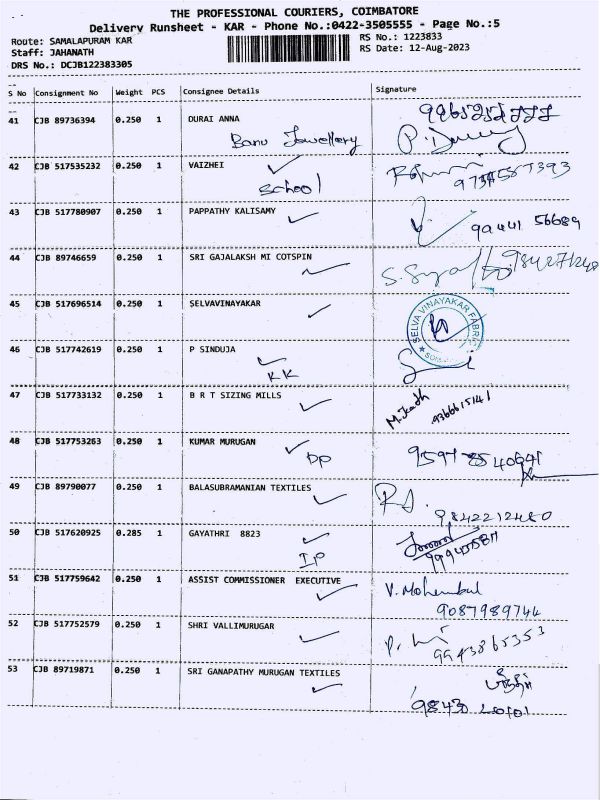 THE PROFESSIONAL COURIERS, COIMBATORE
Delivery Runsheet - KAR - Phone No.:0422-3505555 - Page No.:5
Route: SAMALAPURAM KAR RS No.: 1223833
Staff: JAHANATH RS Date: 12-Aug-2023
DRS No.: DCJB122383305
S No Consignment No Weight PCS Consignee Details Signature
41 CJB 89736394 0.250 1 DURAI ANNA
Banu Jewellery
42 CJB 517535232 0.250 1 VAIZHEI
School
43 CJB 517780907 0.250 1 PAPPATHY KALISAMY
99441 56689
44 CJB 89746659 0.250 1 SRI GAJALAKSH MI COTSPIN
45 CJB 517696514 0.250 1 SELVAVINAYAKAR
SELVA VINAYAKAR FABRIC
46 CJB 517742619 0.250 1 P SINDUJA
KK
47 CJB 517733132 0.250 1 B R T SIZING MILLS
9366615141
48 CJB 517753263 0.250 1 KUMAR MURUGAN
DP
49 CJB 89790077 0.250 1 BALASUBRAMANIAN TEXTILES
9842212480
50 CJB 517620925 0.285 1 GAYATHRI 8823
IP
51 CJB 517759642 0.250 1 ASSIST COMMISSIONER EXECUTIVE
9087989744
52 CJB 517752579 0.250 1 SHRI VALLIMURUGAR
9943865353
53 CJB 89719871 0.250 1 SRI GANAPATHY MURUGAN TEXTILES